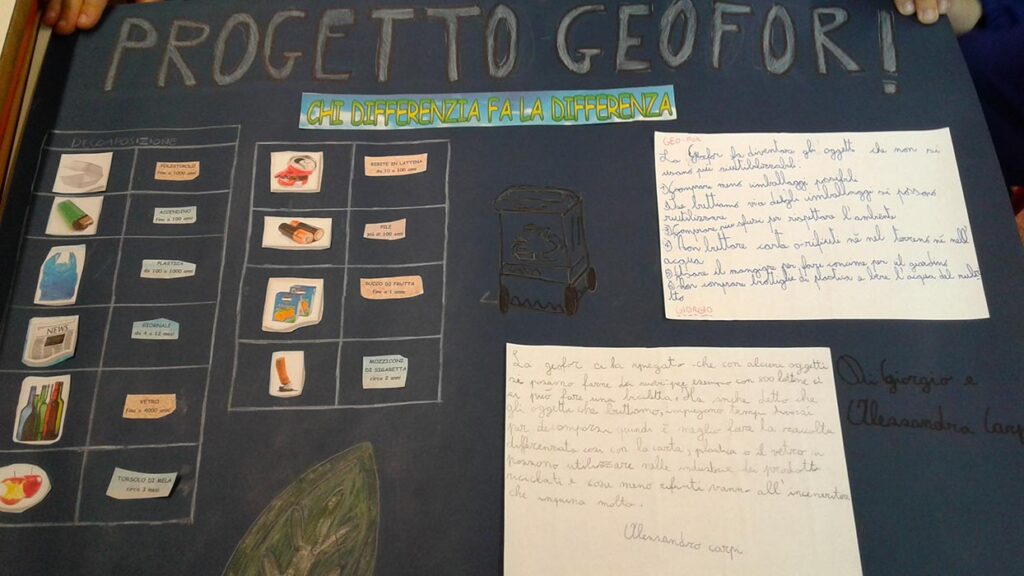 PROGETTO GEOFOR!
CHI DIFFERENZIA FA LA DIFFERENZA
DESCOMPOSIZIONE
POLISTIROLO
fino a 1000 anni
ACCENDINO
fino a 100 anni
PLASTICA
da 100 a 1000 anni
NEWS
GIORNALE
da 4 a 12 mesi
VETRO
fino a 4000 anni
TORSOLO DI MELA
circa 3 mesi
BIBITE IN LATTINA
da 10 a 100 anni
PILE
più di 100 anni
SUCCO DI FRUTTA
fino a 1 anno
MOZZICONI
DI SIGARETTA
circa 2 anni
La Geofor fa diventare gli oggetti che non si
usano più riutilizzabili.
1) Comprare meno imballaggi possibili
che buttiamo via degli imballaggi si possono
riutilizzare
3) Comprare più sfusi per rispettare l'ambiente
4) Non buttare carta o rifiuti nè nel terreno nè nell'
acqua
il mangiare per fare concime per il giardino
non comprare bottiglie di plastica e bere l'acqua del
GIORGIO
La geofor ci ha spiegato che con alcuni oggetti
se possono farne dei nuovi per esempio con 800 lattine ci
si può fare una bicicletta. Ha anche detto che
gli oggetti che buttiamo, impiegano tempi diversi
per decomporsi quindi è meglio fare la raccolta
differenziata così con la carta, plastica o il vetro si
possono utilizzare nelle industrie dei prodotti
riciclati e così meno rifiuti vanno all'inceneritore
che inquina molto.
Alessandro Carpi
Di Giorgio e
Alessandra Carpi